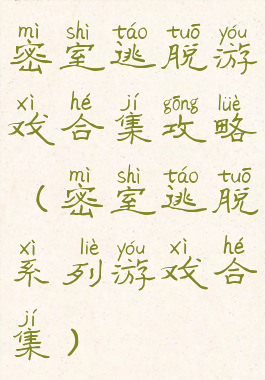 mì shì táo tuō yóu
密室逃脱游
xì hé jí gōng lüè
戏合集攻略
mì shì táo tuō
(密室逃脱
xì liè yóu xì hé
系列游戏合
jí
集)